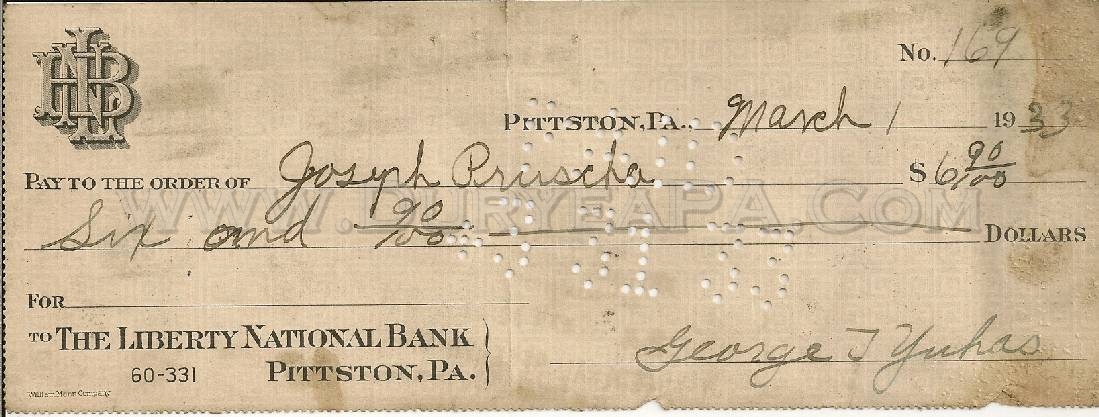 No. 169
PITTSTON, PA., March 1 1933
PAY TO THE ORDER OF Joseph Pruscha $ 6 90/100
Six and 90/100 DOLLARS
WWW.DURYEAPA.COM
FOR
TO THE LIBERTY NATIONAL BANK
60-331 PITTSTON, PA.
George T Yuhas
William Mann Company